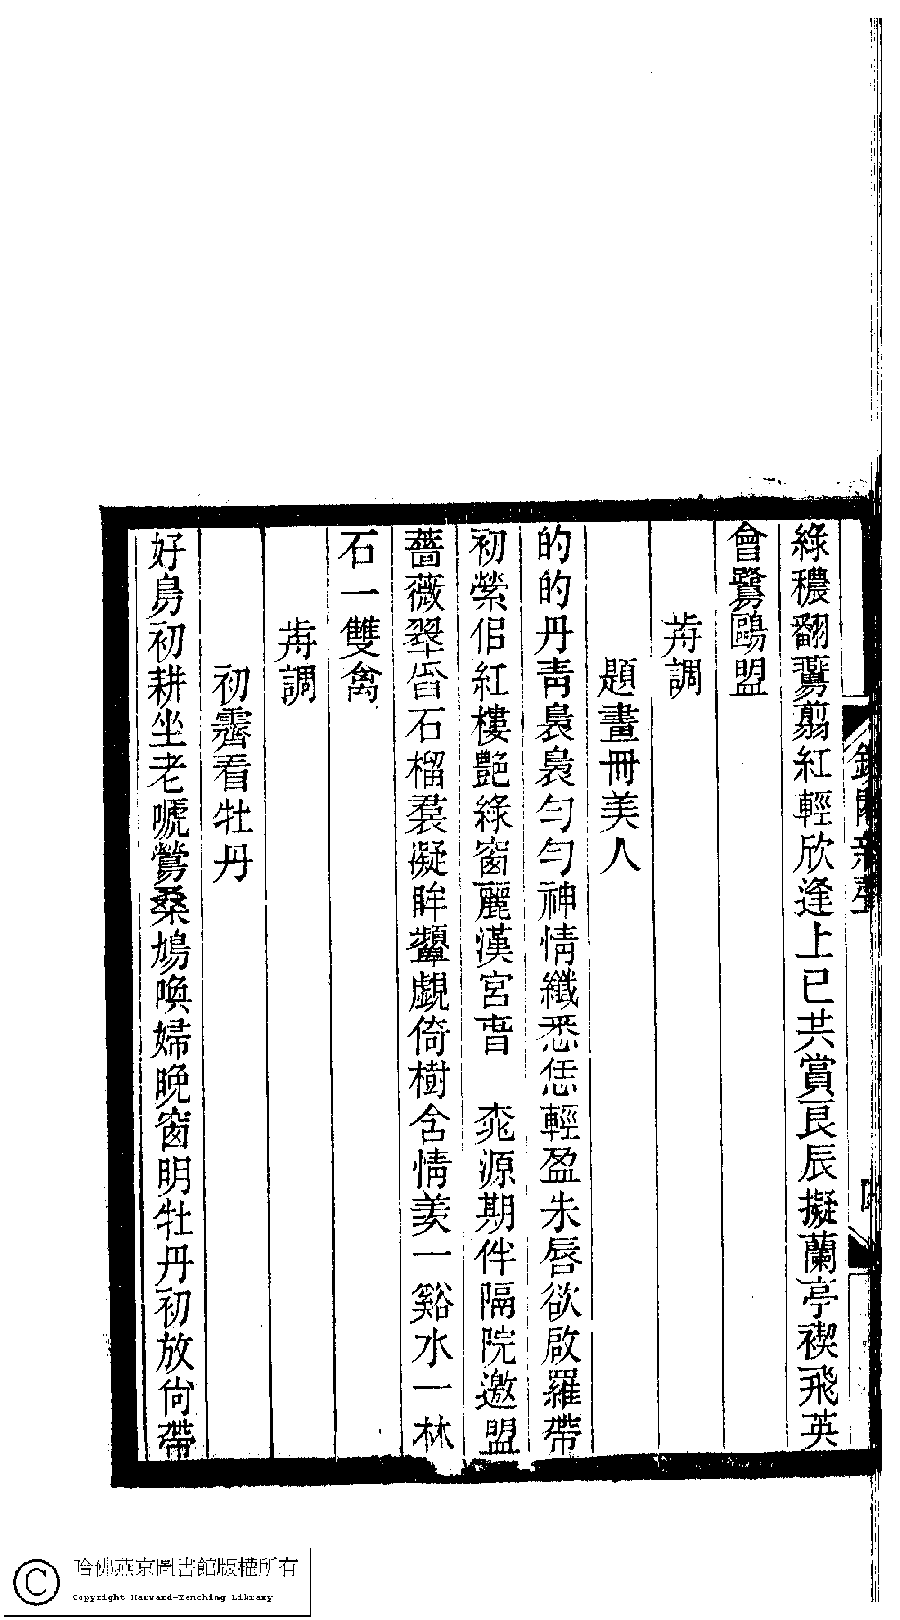 綠穠翻鷚翦紅輕欣逢上巳共賞良辰擬蘭亭禊飛英
會鷺鷗盟
前調
題畫冊美人
的的丹青裊裊勻勻神情纖悉恁輕盈朱唇欲啟羅帶
初縈侶紅樓艷綠窗麗漢宮春　桃源期伴隔院邀盟
薔薇翠沓石榴裙凝眸顰覷倚樹含情羨一谿水一林
石一雙禽
前調
初霽看牡丹
好鳥初耕坐老嗁鶯桑鳩喚婦晚窗明牡丹初放尚帶
哈佛燕京圖書館版權所有
Copyright Harvard-Yenching Library